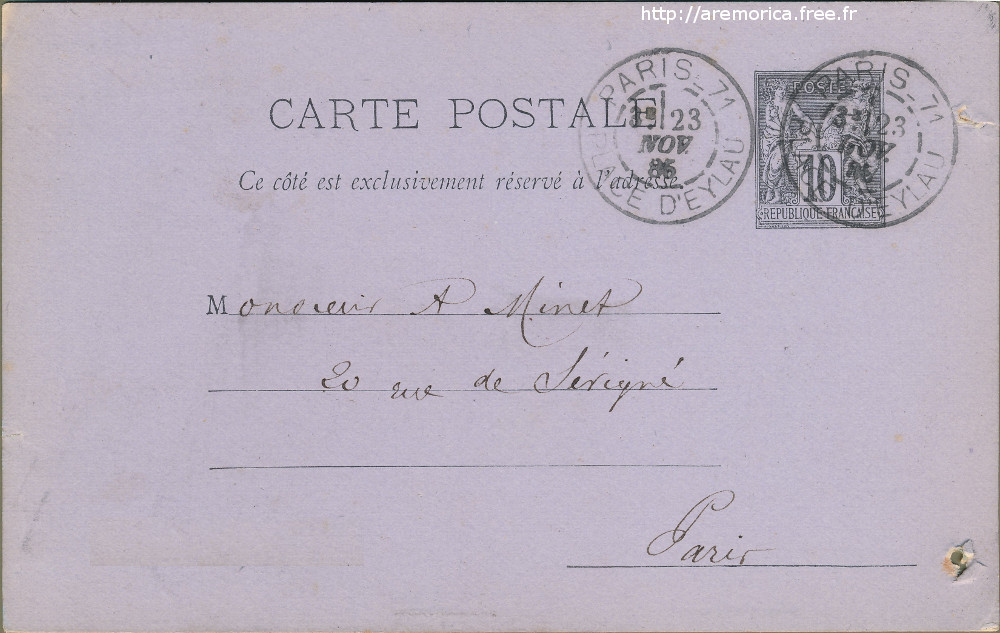 http://aremorica.free.fr
CARTE POSTALE
Ce côté est exclusivement réservé à l'adresse.
PARIS-71
3E 23
NOV.
86
PLACE D'EYLAU
POSTE
10
REPUBLIQUE FRANÇAISE
PARIS-71
3E 23
NOV.
86
EYLAU
Monsieur A Minet
20 rue de Sévigné
Paris